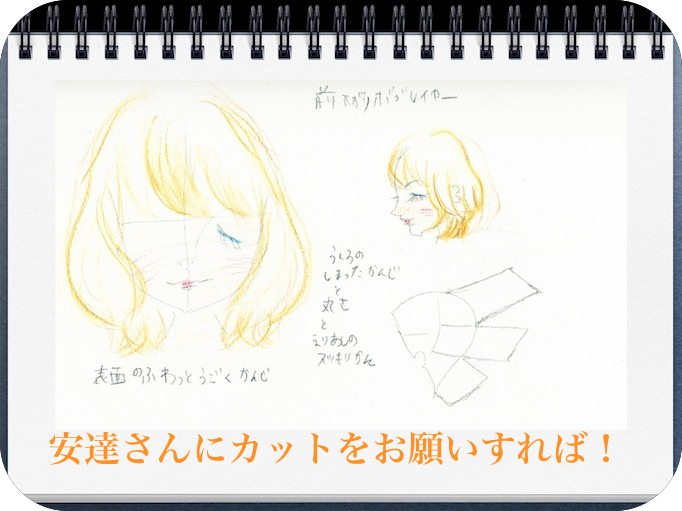 前下がりボブレイヤー
うしろの
しまったかんじ
と
丸さ
と
えりあしの
スッキリかん
表面のふわっとうごくかんじ
安達さんにカットをお願いすれば！